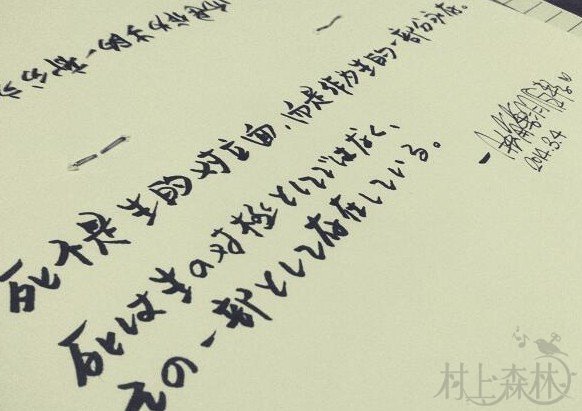 死不是生的对立面，而是作为生的一部分永存。
死は生の対極としてではなく、
その一部として存在している。
2014.3.4
村上森林